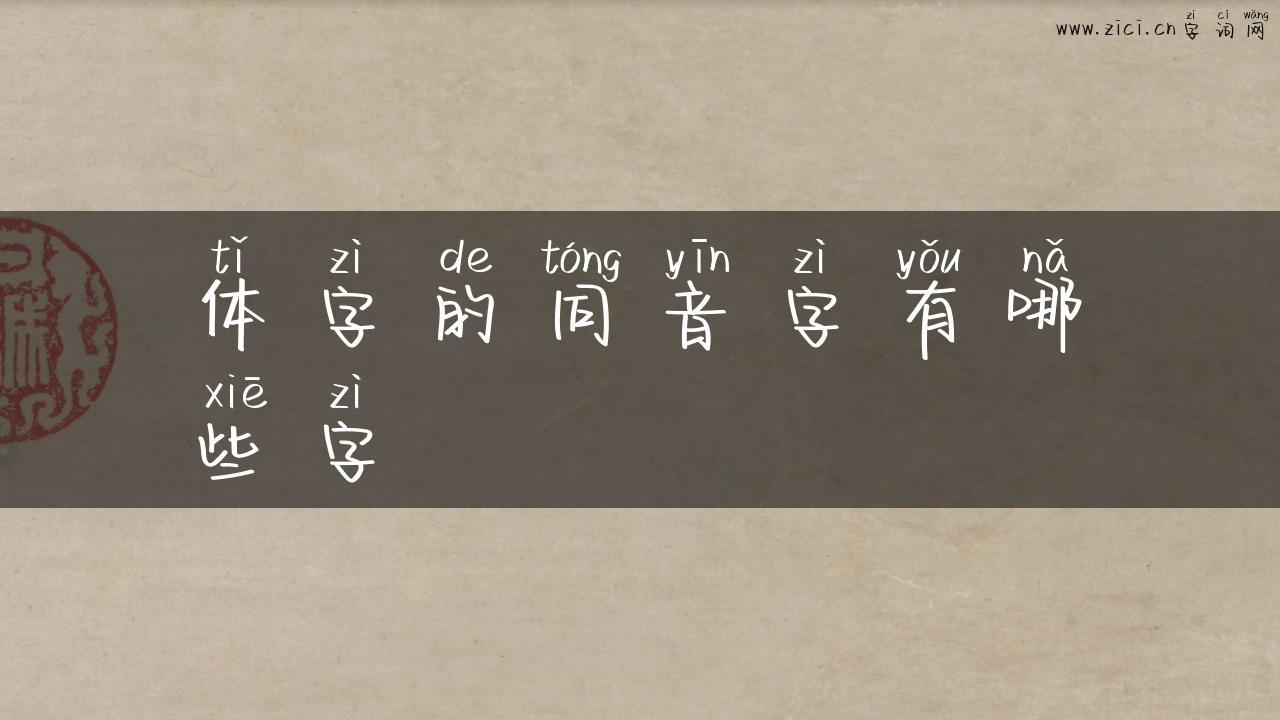 zì cí wǎng
www.zici.cn字词网
tǐ zì de tóng yīn zì yǒu nǎ
体字的同音字有哪
xiē zì
些字